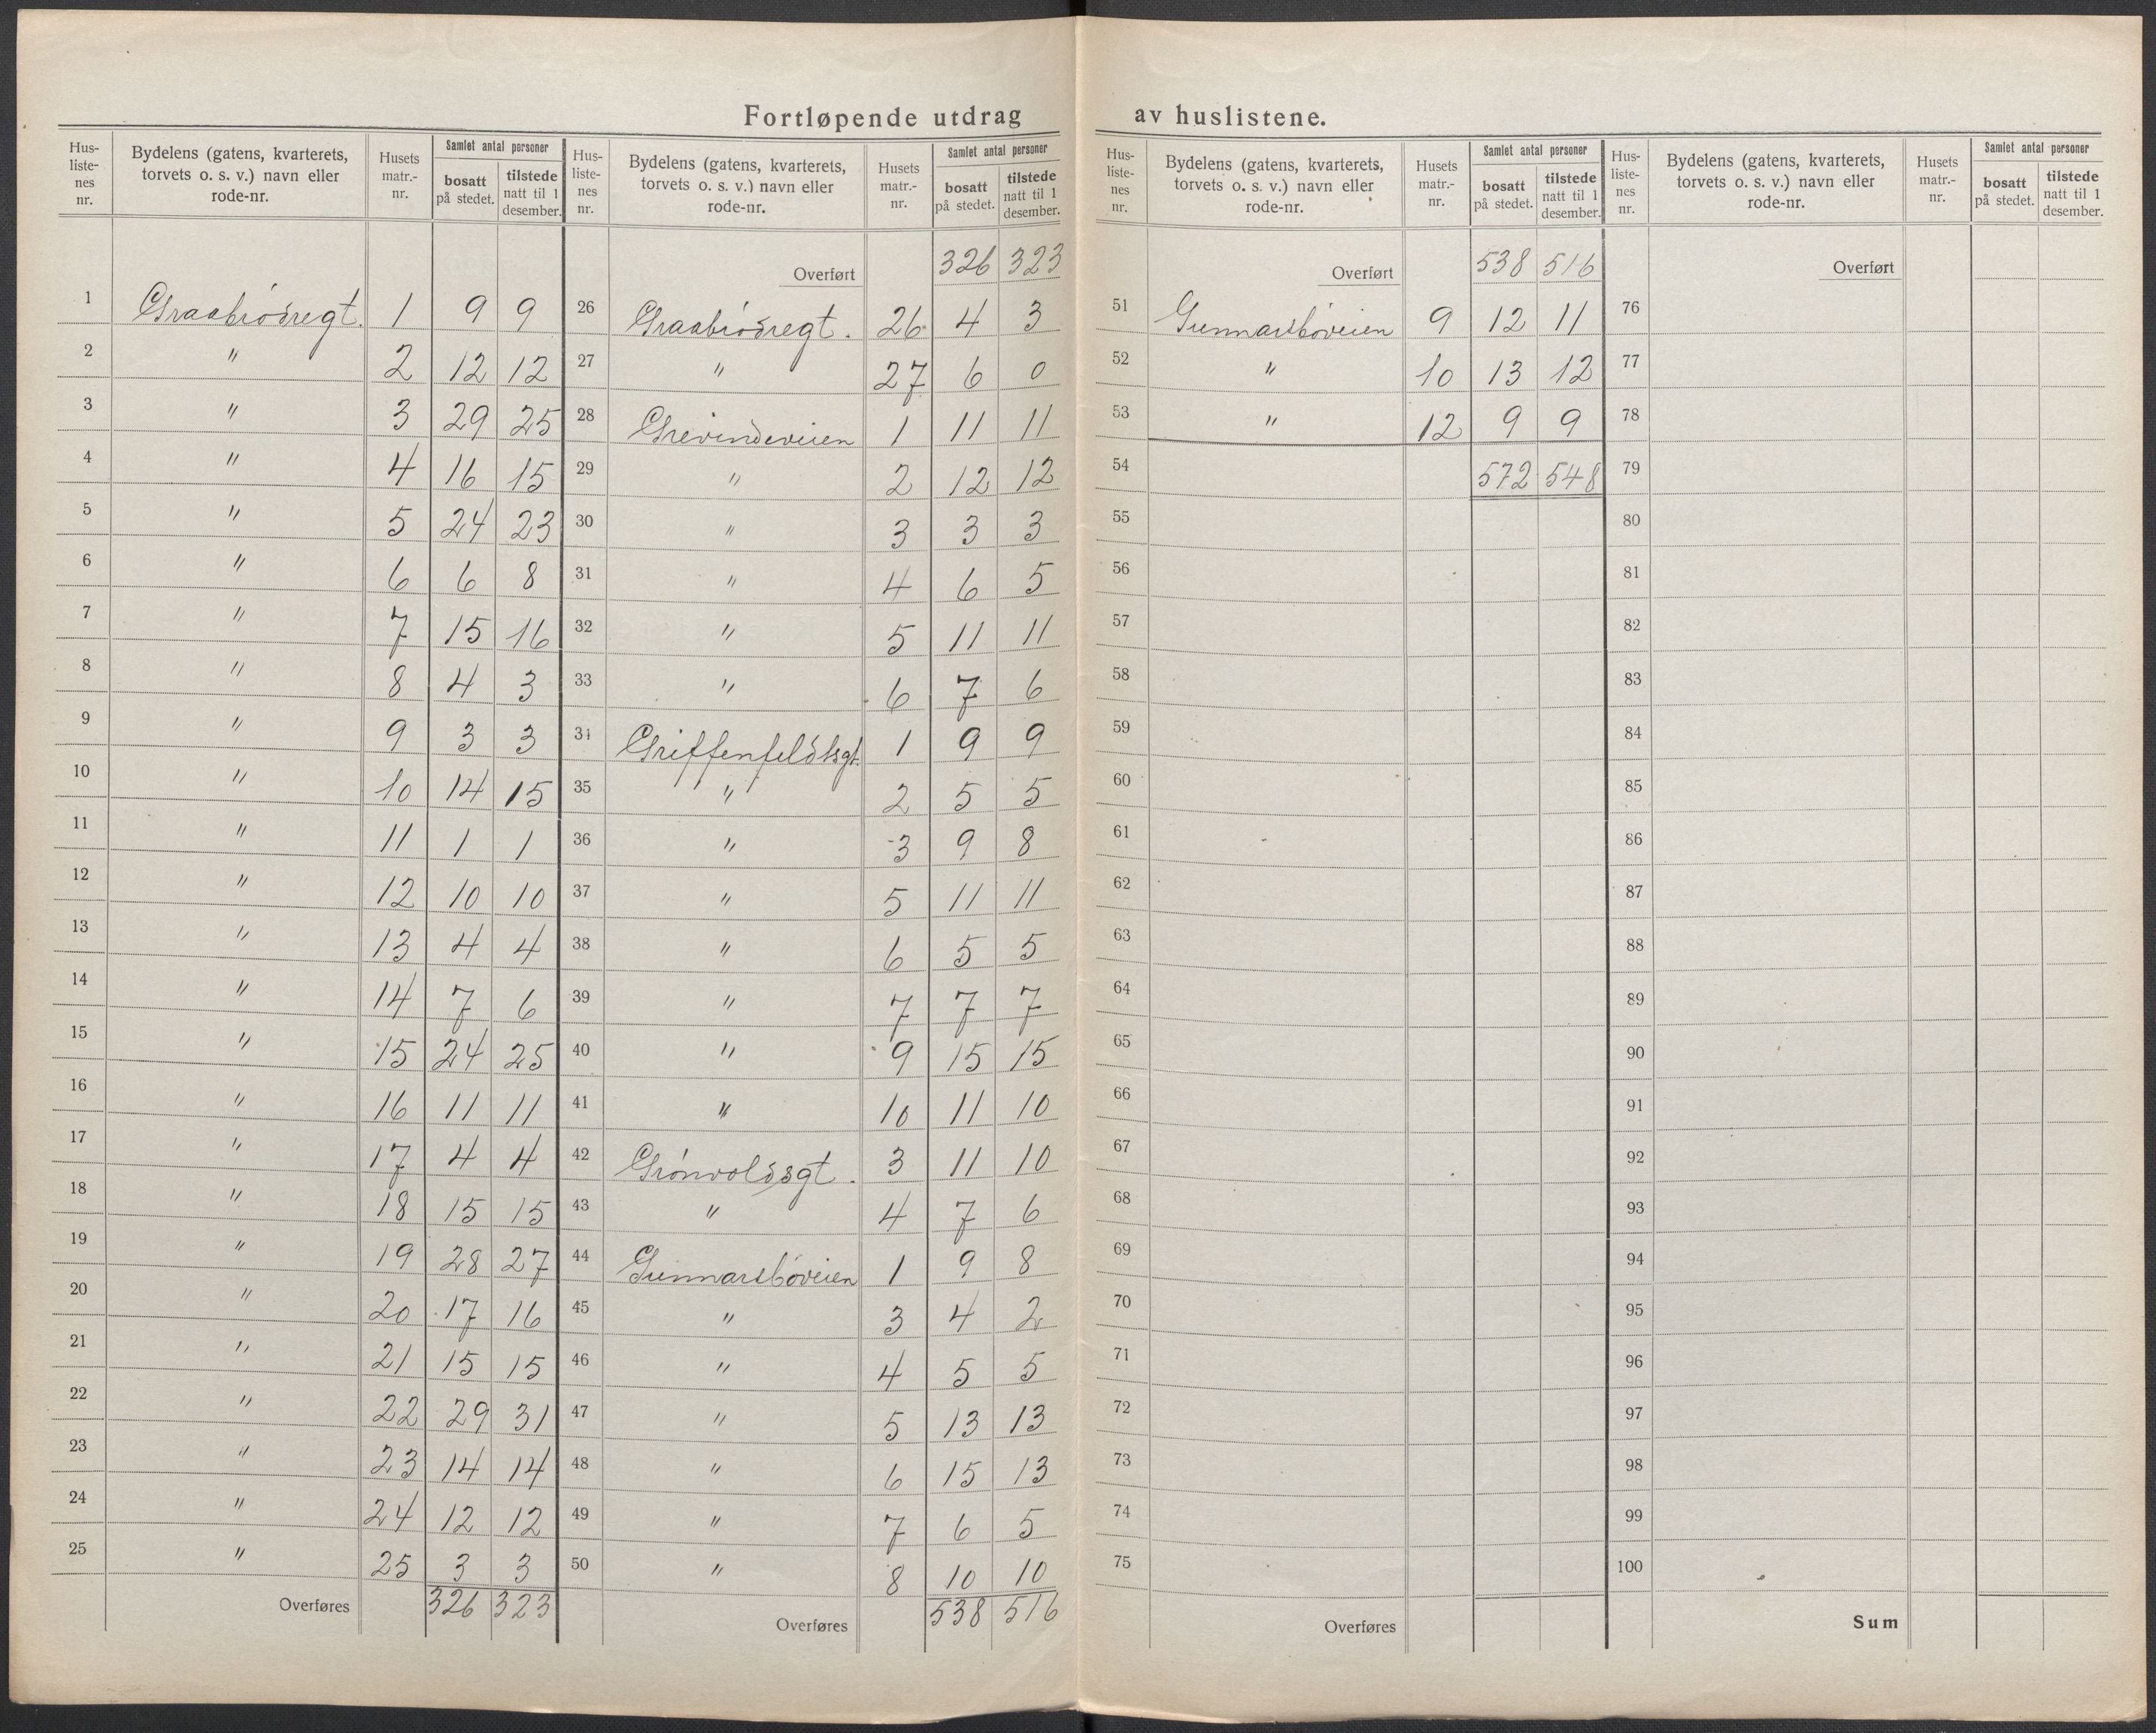 Fortløpende utdrag av huslistene.
Hus-listenes nr. | Bydelens (gatens, kvarterets, torvets o. s. v.) navn eller rode-nr. | Husets matr.-nr. | Samlet antal personer bosatt på stedet. | tilstede natt til 1 desember.
1 Graabrødregt. 1 9 9
2 " 2 12 12
3 " 3 29 25
4 " 4 16 15
5 " 5 24 23
6 " 6 6 8
7 " 7 15 16
8 " 8 4 3
9 " 9 3 3
10 " 10 14 15
11 " 11 1 1
12 " 12 10 10
13 " 13 4 4
14 " 14 7 6
15 " 15 24 25
16 " 16 11 11
17 " 17 4 4
18 " 18 15 15
19 " 19 28 27
20 " 20 17 16
21 " 21 15 15
22 " 22 29 31
23 " 23 14 14
24 " 24 12 12
25 " 25 3 3
Overføres 326 323
Hus-listenes nr. | Bydelens (gatens, kvarterets, torvets o. s. v.) navn eller rode-nr. | Husets matr.-nr. | Samlet antal personer bosatt på stedet. | tilstede natt til 1 desember.
Overført 326 323
26 Graabrødregt. 26 4 3
27 " 27 6 0
28 Grevindeveien 1 11 11
29 " 2 12 12
30 " 3 3 3
31 " 4 6 5
32 " 5 11 11
33 " 6 7 6
34 Griffenfeldtsgt. 1 9 9
35 " 2 5 5
36 " 3 9 8
37 " 5 11 11
38 " 6 5 5
39 " 7 7 7
40 " 9 15 15
41 " 10 11 10
42 Grønvoldsgt. 3 11 10
43 " 4 7 6
44 Gunnarsbøveien 1 9 8
45 " 3 4 2
46 " 4 5 5
47 " 5 13 13
48 " 6 15 13
49 " 7 6 5
50 " 8 10 10
Overføres 538 516
Hus-listenes nr. | Bydelens (gatens, kvarterets, torvets o. s. v.) navn eller rode-nr. | Husets matr.-nr. | Samlet antal personer bosatt på stedet. | tilstede natt til 1 desember.
Overført 538 516
51 Gunnarsbøveien 9 12 11
52 " 10 13 12
53 " 12 9 9
54 572 548
55
56
57
58
59
60
61
62
63
64
65
66
67
68
69
70
71
72
73
74
75
Overføres
Hus-listenes nr. | Bydelens (gatens, kvarterets, torvets o. s. v.) navn eller rode-nr. | Husets matr.-nr. | Samlet antal personer bosatt på stedet. | tilstede natt til 1 desember.
Overført
76
77
78
79
80
81
82
83
84
85
86
87
88
89
90
91
92
93
94
95
96
97
98
99
100
Sum